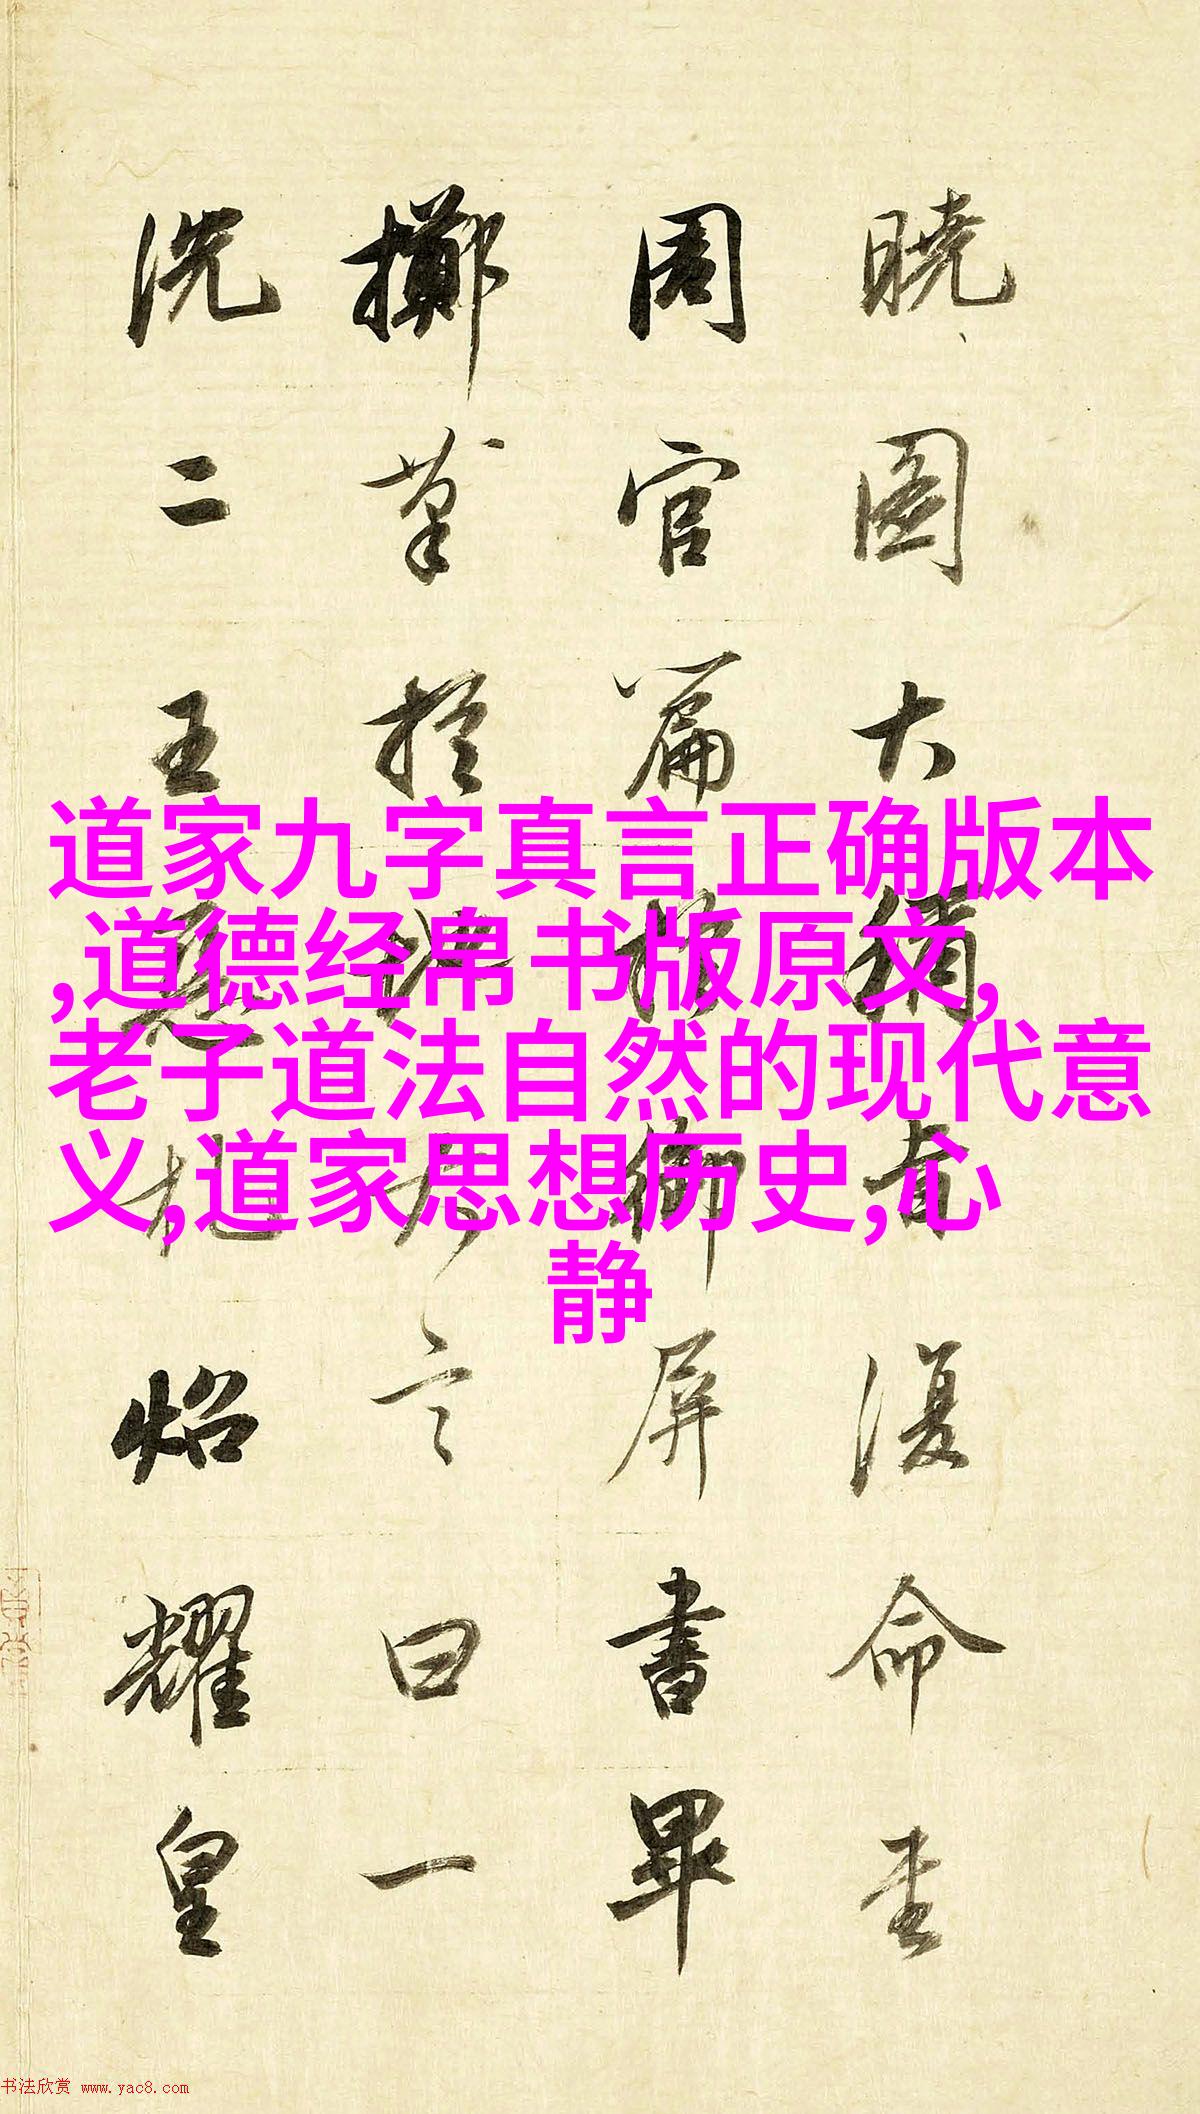 曉圖大稱旨復命書
周官篇於御屏書畢
擲筆於地大言曰一
洗二王惡札炤耀皇
道家九字真言正确版本
,道德经帛书版原文,
老子道法自然的现代意
义,道家思想历史,心
静
书法欣赏 www.yac8.com